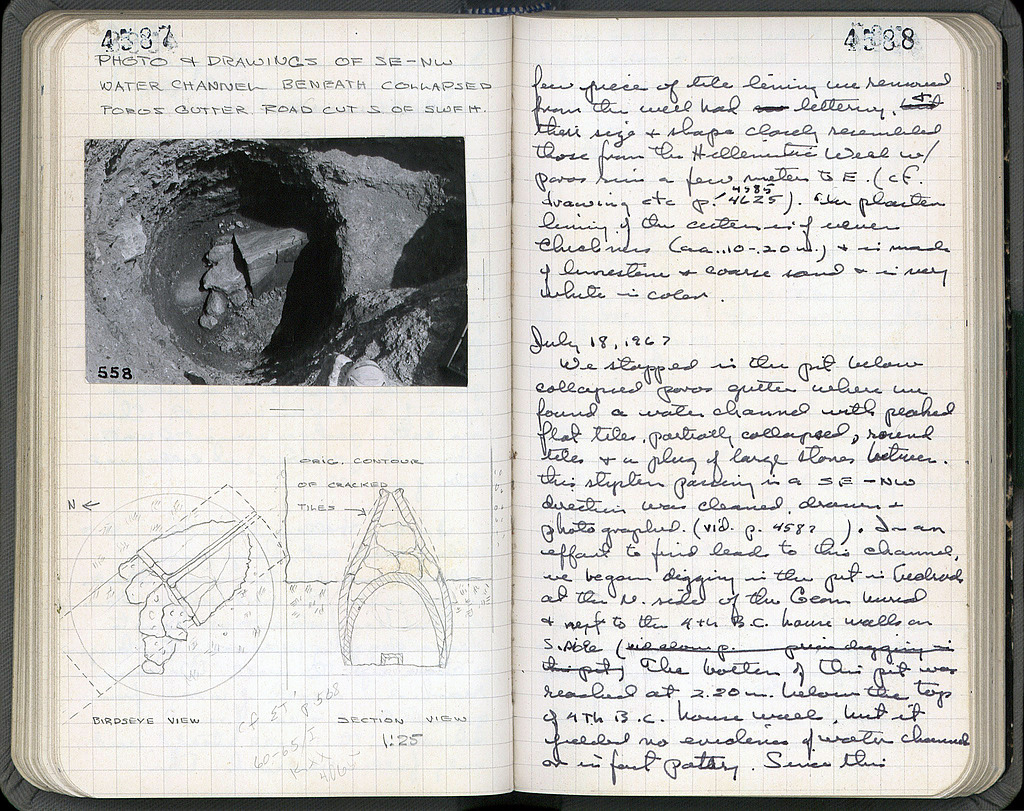 4587
PHOTO & DRAWINGS OF SE-NW
WATER CHANNEL BENEATH COLLAPSED
POROS GUTTER. ROAD CUT S OF
558
ORIG. CONTOUR
OF CRACKED
TILES
N
BIRDSEYE VIEW
SECTION VIEW
1:25
cf ST p. 568
60-65/I
4588
few piece of tile lining we removed
from the well had lettering, &
their size & shape closely resembled
those from the Hellenistic Well w/
poros rim a few meters E. (cf.
4585
drawing etc p. 4625). The plaster
lining of the cistern is of uneven
thickness (ca. .10-.20 m.) & is made
of limestone & coarse sand & is very
white in color.
July 18, 1967
We stopped in the pit below
collapsed poros gutter when we
found a water channel with peaked
flat tiles, partially collapsed, round
tiles & a plug of large stones between.
this system passing in a SE-NW
direction was cleaned, drawn &
photographed (vid. p. 4587). In an
effort to find leads to this channel,
we began digging in the pit in bedrock
at the N. side of the Geom burial
& next to the 4th B.C. house walls on
S. side (
this pit) The bottom of this pit was
reached at 2.20 m. below the top
of 4TH B.C. house wall, but it
yielded no evidence of water channel
or in fact pottery. Since this